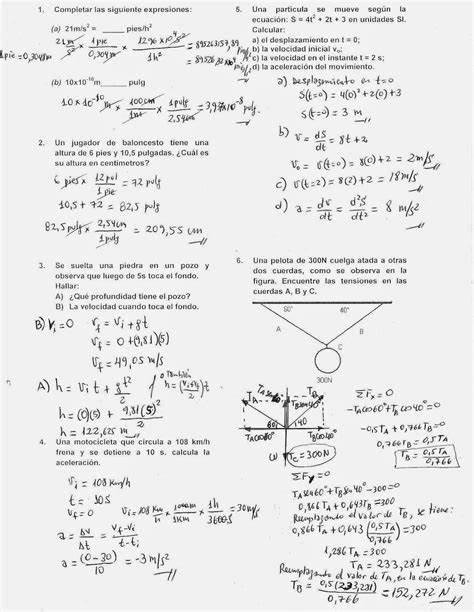 1. Completar las siguiente expresiones:
(a) 21m/s² = ____ pies/h²
21m/s² × 1pie/0,3048m × 12.96 × 10⁶ s²/1h²
1pie = 0,3048m
(b) 10x10⁻¹⁰m____ pulg
10 × 10⁻¹⁰ m × 100cm/1mt × 1pulg/2.54cm = 3,93×10⁻⁸ pulg
2. Un jugador de baloncesto tiene una
altura de 6 pies y 10,5 pulgadas. ¿Cuál es
su altura en centímetros?
6 pies × 12 pul/1pie = 72 pulg
10,5 + 72 = 82.5 pulg
82,5 pulg × 2,54cm/1pulg = 209,55 cm
3. Se suelta una piedra en un pozo y
observa que luego de 5s toca el fondo.
Hallar:
A) ¿Qué profundidad tiene el pozo?
B) La velocidad cuando toca el fondo.
B) Vi = 0 Vf = Vi + gt
Vf = 0 + (9,81)(5)
Vf = 49,05 m/s
A) h = Vi t + gt²/2 / O también h = (Vi+Vf/2)t
h = (0)(5) + 9,81(5)²/2
h = 122,625 m
4. Una motocicleta que circula a 108 km/h
frena y se detiene a 10 s. calcula la
aceleración.
Vi = 108 Km/h
t = 10s
Vf = 0 Vi = 108 Km/h × 1000m/1KM × 1h/3600s = 30 m/s
a = Δv/Δt = Vf-Vi/t-ti
a = (0-30)/10 = -3 m/s²
5. Una particula se mueve según la
ecuación: S = 4t² + 2t + 3 en unidades SI.
Calcular:
a) el desplazamiento en t = 0;
b) la velocidad inicial v₀;
c) la velocidad en el instante t = 2 s;
d) la aceleración del movimiento.
a) Desplazamiento en t=0
S(t=0) = 4(0)² + 2(0) + 3
S(t=0) = 3 m
b) V = ds/dt = 8t + 2
V₀ = V(t=0) = 8(0) + 2 = 2 m/s
c) V(t=2) = 8(2) + 2 = 18 m/s
d) a = dv/dt = d²s/dt² = 8 m/s²
6. Una pelota de 300N cuelga atada a otras
dos cuerdas, como se observa en la
figura. Encuentre las tensiones en las
cuerdas A, B y C.
60° 40°
A B
C
300N
TA TB
60 40
TAcos60° TBcos40°
(W) TC = 300N
ΣFx = 0
-TAcos60° + TBcos40° = 0
-0,5TA + 0,766TB = 0
0,766TB = 0,5TA
TB = 0,5TA/0,766
ΣFy = 0
TAsen60° + TBsen40° - 300 = 0
0,866TA + 0,643TB = 300
Reemplazando el valor de TB, se tiene:
0,866TA + 0,643(0,5TA/0,766) = 300
1,286TA = 300
TA = 233,281 N
Reemplazando el valor de TA, en la ecuación de TB.
TB = 0,5(233,281)/0,766 = 152,272 N